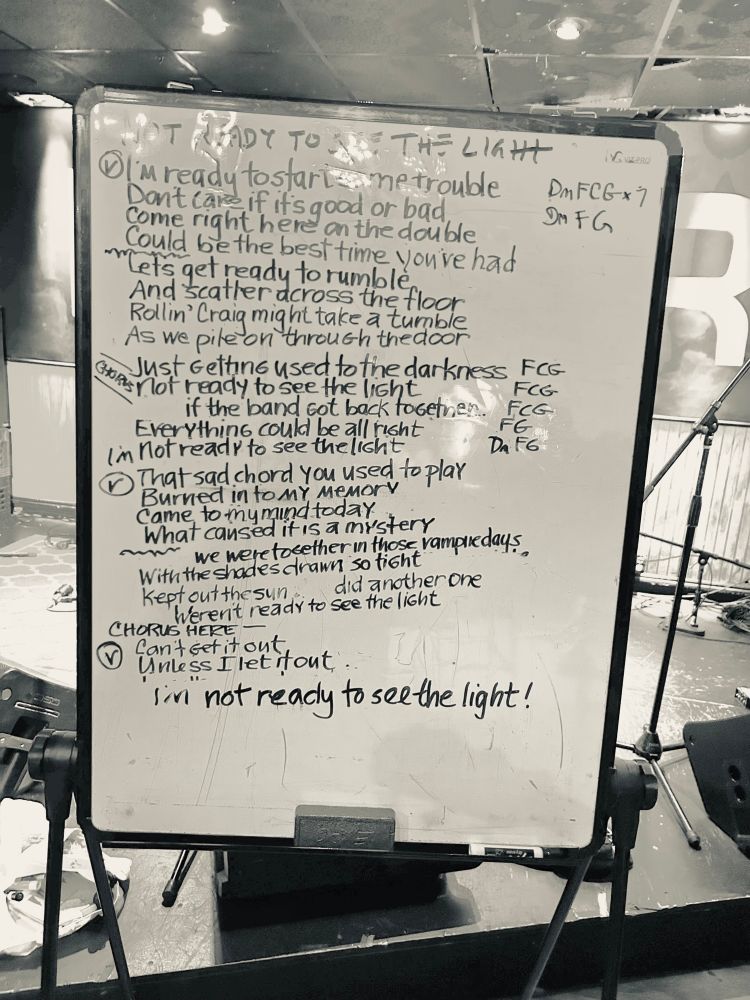 NOT READY TO SEE THE LIGHT
V I'm ready to start some trouble DmFCG x 7
Don't care if it's good or bad Dm F G
Come right here on the double
Could be the best time you've had
Lets get ready to rumble
And scatter across the floor
Rollin' Craig might take a tumble
As we pile on through the door
CHORUS Just Getting used to the darkness FCG
Not ready to see the light FCG
if the band got back together.. FCG
Everything could be all right FG
I'm Not ready to see the light Dm FG
V That sad chord you used to play
Burned in to my memory
Came to my mind today
What caused it is a mystery
we were together in those vampire days
With the shades drawn so tight
Kept out the sun... did another one
Weren't ready to see the light
CHORUS HERE —
V Can't get it out
Unless I let it out ..
I'm not ready to see the light!
R